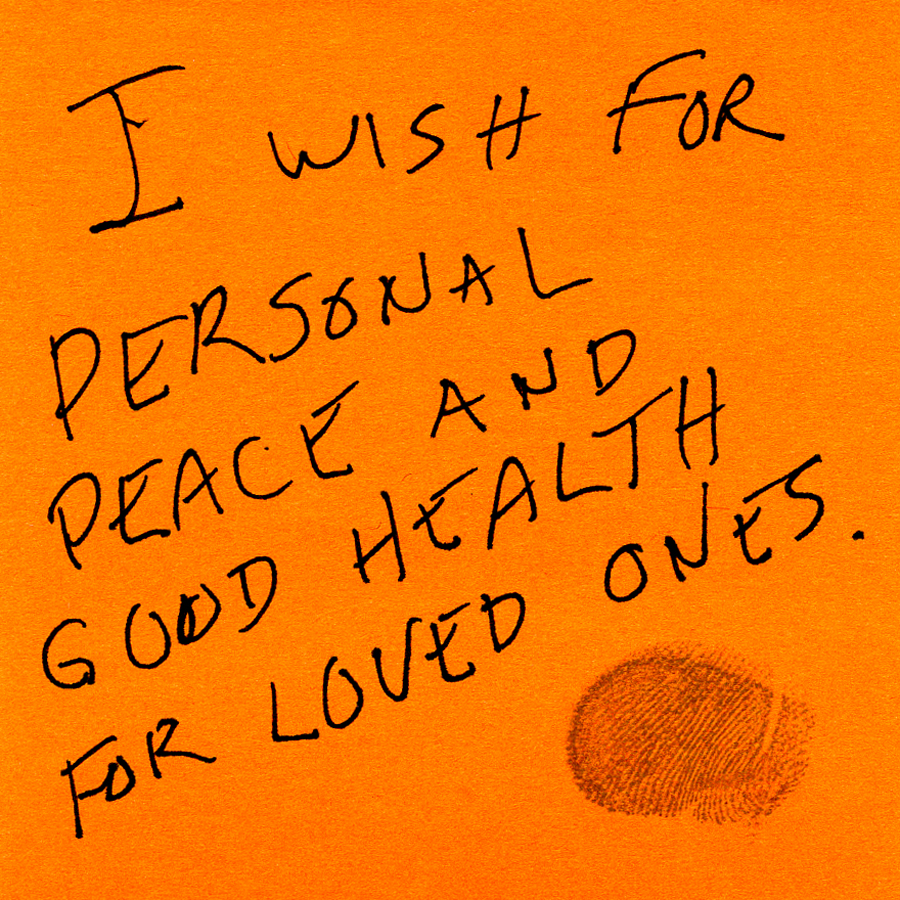 I WISH FOR
PERSONAL
PEACE AND
GOOD HEALTH
FOR LOVED ONES.